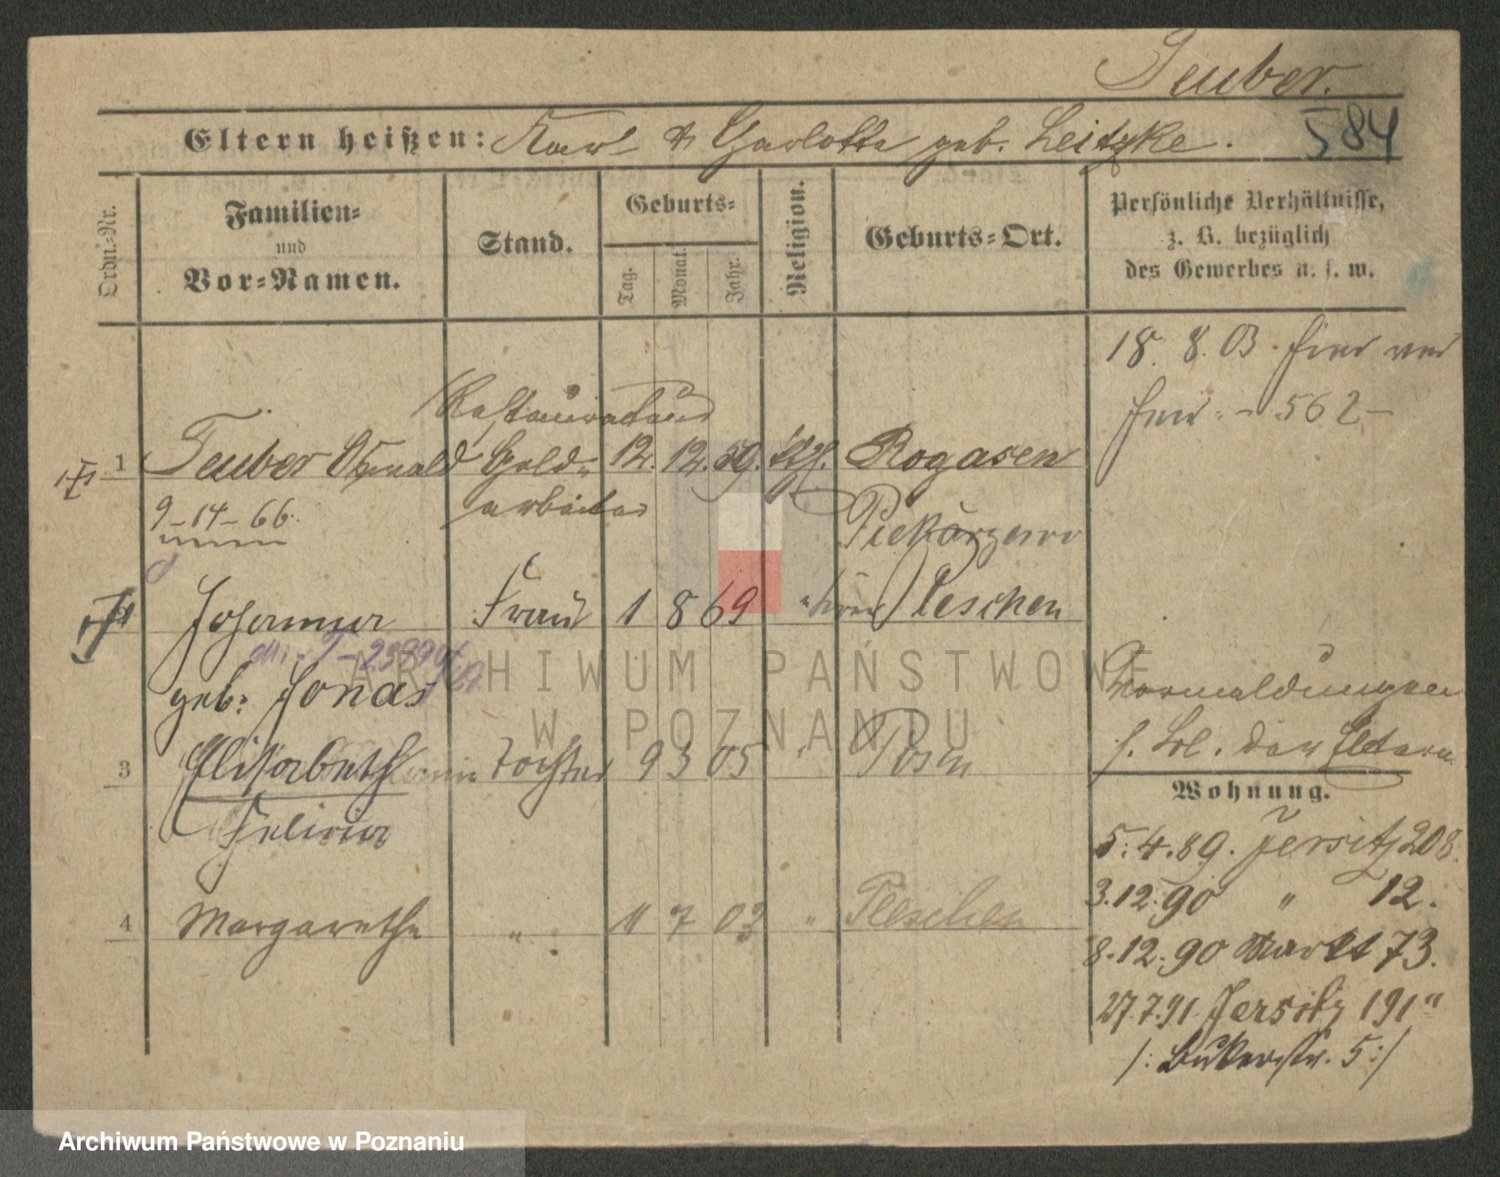 Teuber.
Eltern heißen: Karl & Charlotte geb. Leitzke.
584
Ordn.-Nr.
Familien-
und
Vor-Namen.
Stand.
Geburts-
Tag. Monat. Jahr.
Religion.
Geburts-Ort.
Persönliche Verhältnisse,
z. B. bezüglich
des Gewerbes u. s. w.
18. 8. 03.
562
Restaurateur
1 Teuber Oswald Gold- 12. 12. 59. Rogasen
arbeiter
9-14-66.
Johanna Frau 1 8 69 Pleschen
geb. Jonas
3 Elisabeth Tochter 9 3 05 " Posen
Felicia
4 Margarethe " 11 7 02 " Pleschen
Vormeldungen
s. Bl. der Eltern
Wohnung.
5.4.89. Jersitz 208.
3.12.90 " 12.
8.12.90 Markt 73.
27.7.91. Jersitz 191a
/: Bukerstr. 5:/
ARCHIWUM PAŃSTWOWE
W POZNANIU
Archiwum Państwowe w Poznaniu